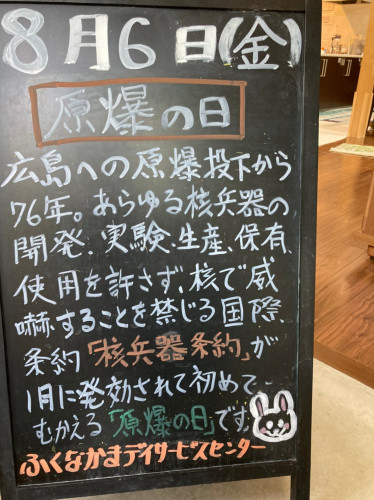 8月6日(金)
原爆の日
広島への原爆投下から
76年。あらゆる核兵器の
開発、実験、生産、保有、
使用を許さず、核で威
嚇することを禁じる国際
条約「核兵器条約」が
1月に発効されて初めて
むかえる「原爆の日」です
ふくなかまデイサービスセンター